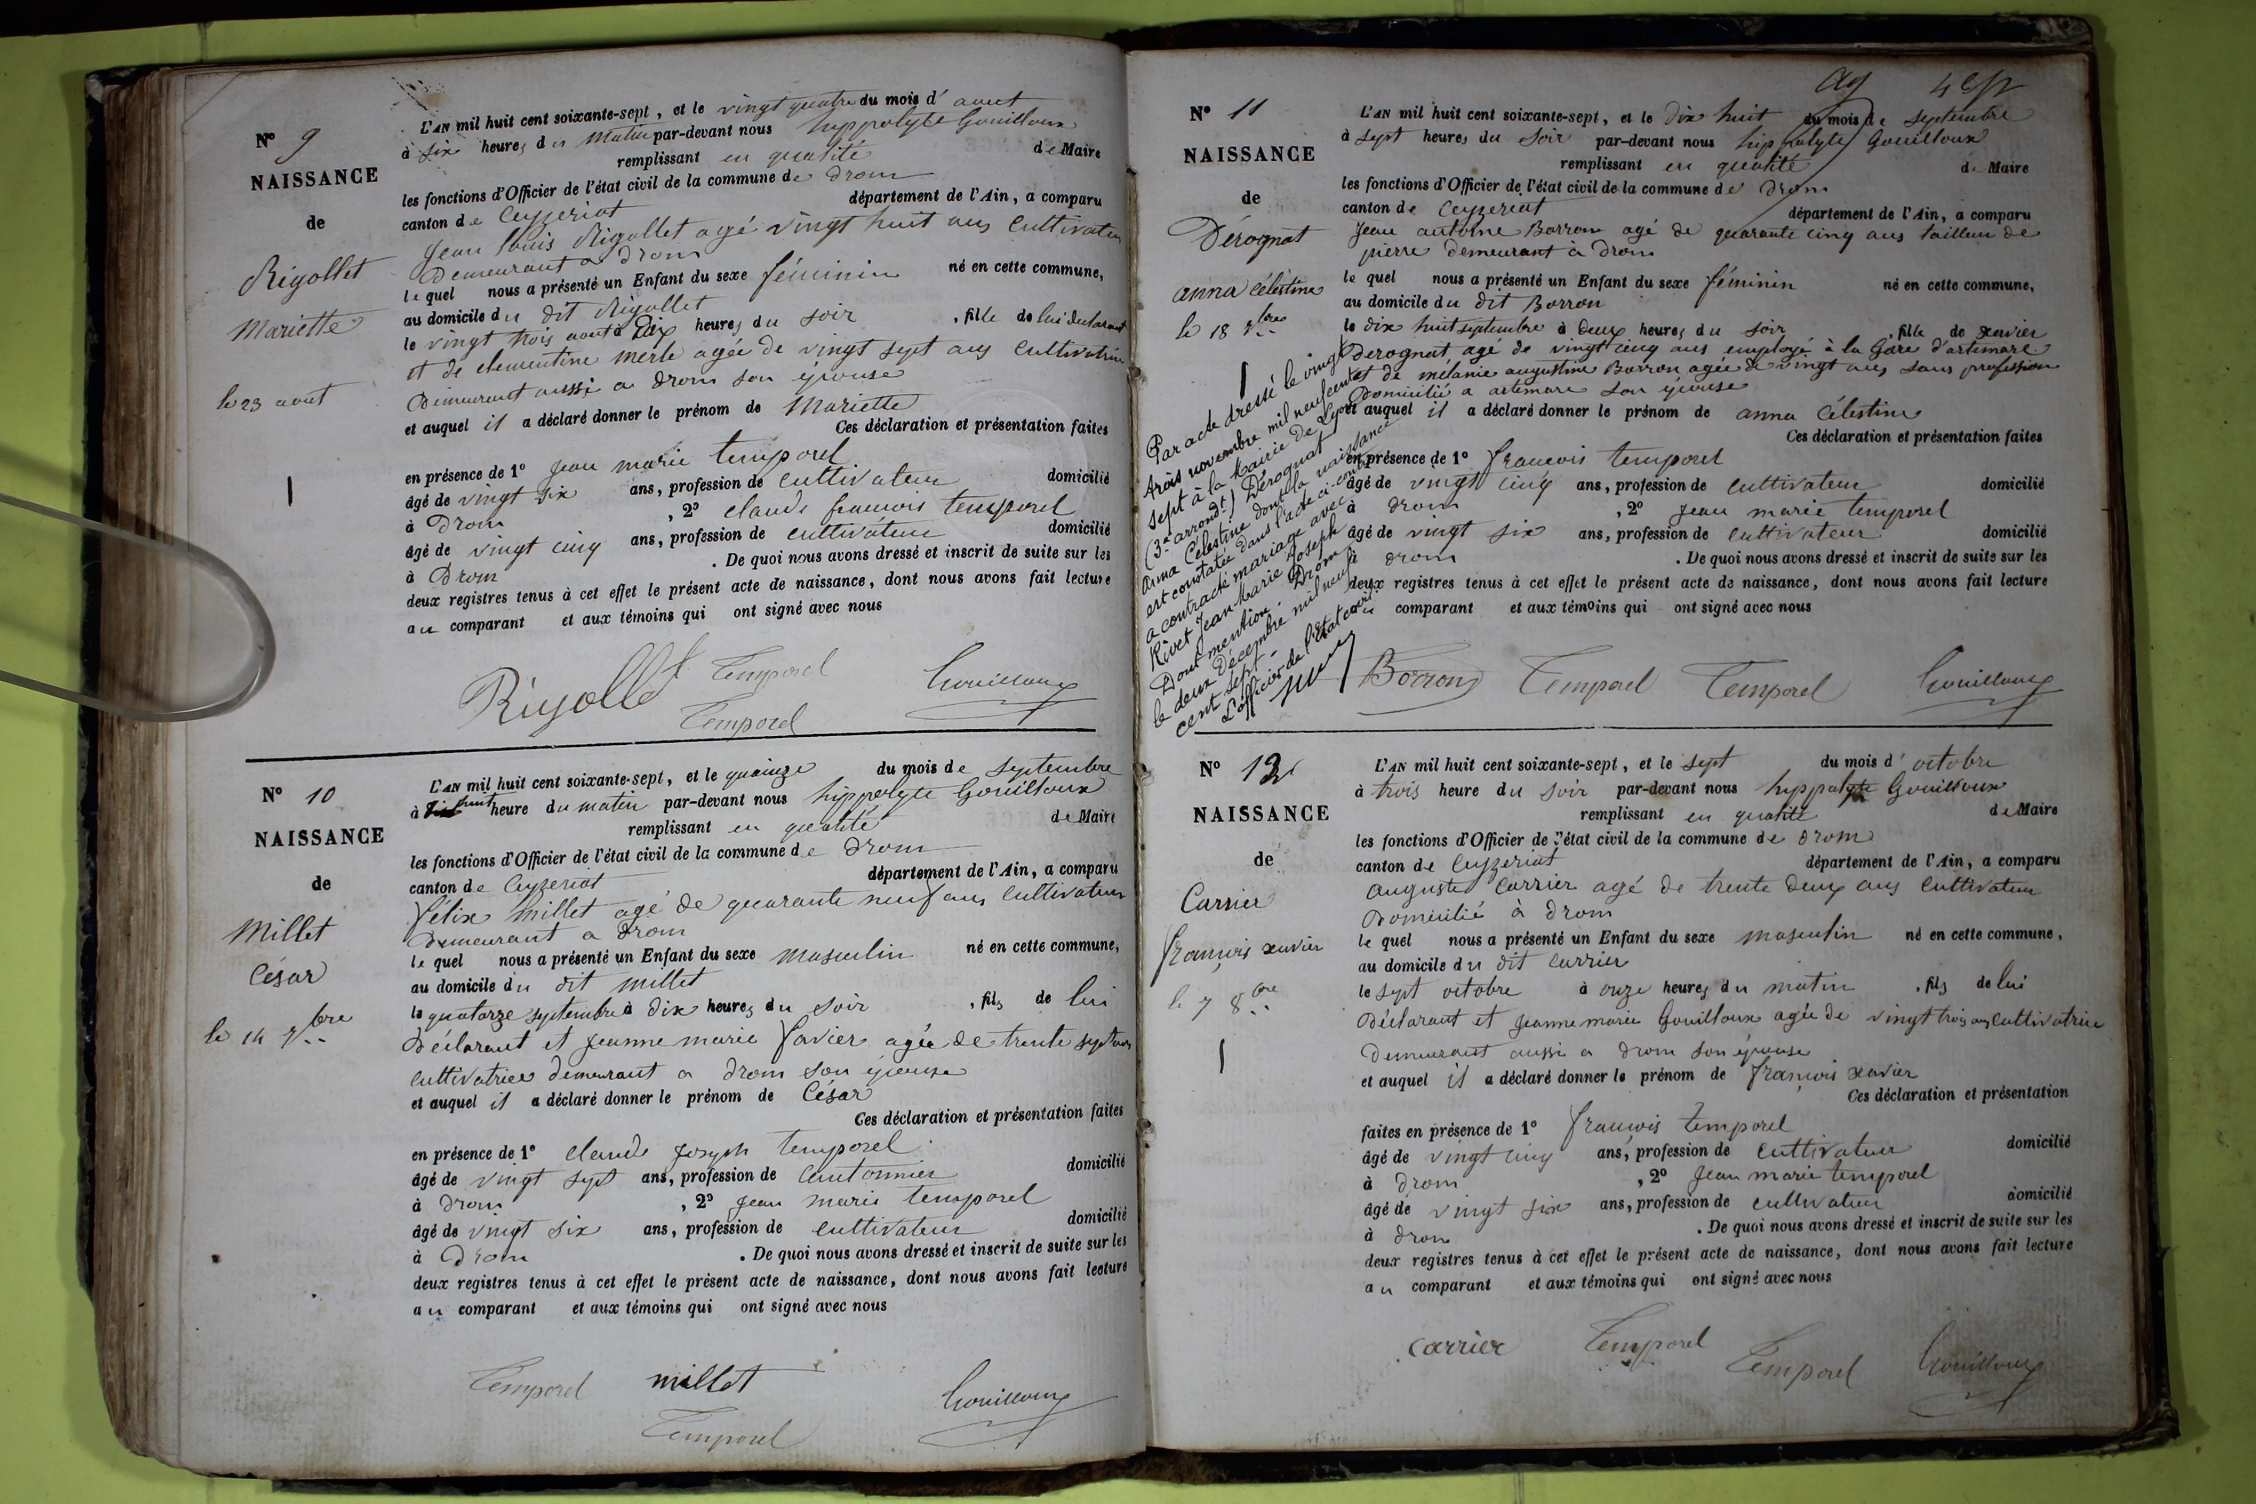 N° 9
NAISSANCE
de
Rigollet
Mariette
le 23 aout
L'AN mil huit cent soixante-sept, et le vingt quatre du mois d' aout
à six heures du matin par-devant nous hyppolyte Gouilloux
remplissant en qualité de Maire
les fonctions d'Officier de l'état civil de la commune de drom
canton de Ceyzeriat département de l'Ain, a comparu
Jean louis Rigollet agé vingt huit ans Cultivateur
Demeurant a drom
le quel nous a présenté un Enfant du sexe féminin né en cette commune,
au domicile du dit Rigollet
le vingt trois aout à dix heures du soir, fille de lui declarant
et de clementine merle agée de vingt sept ans Cultivatrice
Demeurant aussi a drom son épouse
et auquel il a déclaré donner le prénom de Mariette
Ces déclaration et présentation faites
en présence de 1° Jean marie temporel
âgé de vingt six ans, profession de Cultivateur domicilié
à Drom, 2° claude francois temporel
âgé de vingt cinq ans, profession de cultivateur domicilié
à Drom. De quoi nous avons dressé et inscrit de suite sur les
deux registres tenus à cet effet le présent acte de naissance, dont nous avons fait lecture
au comparant et aux témoins qui ont signé avec nous
Rigollet Temporel Gouilloux
Temporel
N° 10
NAISSANCE
de
Millet
César
le 14 7bre
L'AN mil huit cent soixante-sept, et le quainze du mois de septembre
à huit heure du matin par-devant nous hyppolyte Gouilloux
remplissant en qualité de Maire
les fonctions d'Officier de l'état civil de la commune de drom
canton de Ceyzeriat département de l'Ain, a comparu
félix Millet agé de quarante neuf ans Cultivateur
Demeurant a Drom
le quel nous a présenté un Enfant du sexe masculin né en cette commune,
au domicile du dit millet
le quatorze septembre à dix heures du soir, fils de lui
Déclarant et Jeanne marie favier agée de trente sept ans
Cultivatrice demeurant a drom son épouse
et auquel il a déclaré donner le prénom de César
Ces déclaration et présentation faites
en présence de 1° claude Joseph temporel
âgé de vingt sept ans, profession de Cantonnier domicilié
à drom, 2° Jean marie temporel
âgé de vingt six ans, profession de cultivateur domicilié
à Drom. De quoi nous avons dressé et inscrit de suite sur les
deux registres tenus à cet effet le présent acte de naissance, dont nous avons fait lecture
au comparant et aux témoins qui ont signé avec nous
Temporel millet
Temporel Gouilloux
N° 11
NAISSANCE
de
Dérognat
anna Célestine
le 18 7bre
Par acte dressé le vingt
trois novembre mil neuf cent
sept à la Mairie de Lyon
(3e arrondt) Dérognat
Anna Célestine dont la naissance
est constatée dans l'acte ci-contre
a contracté mariage avec
Rivet Jean Marie Joseph
Dont mention. Drom
le deux Décembre mil neuf
cent sept.
L'officier de l'Etat civil
L'AN mil huit cent soixante-sept, et le dix huit du mois de septembre
à sept heures du soir par-devant nous hippolyte Gouilloux
remplissant en qualité de Maire
les fonctions d'Officier de l'état civil de la commune de drom
canton de Ceyzeriat département de l'Ain, a comparu
Jean antoine Borron agé de quarante cinq ans tailleur de
pierre demeurant à drom
le quel nous a présenté un Enfant du sexe féminin né en cette commune,
au domicile du dit Borron
le dix huit septembre à deux heures du soir, fille de xavier
Derognat agé de vingt cinq ans employé à la Gare d'artemare
et de mélanie augustine Borron agée de vingt ans sans profession
Domicilié a artemare son épouse
et auquel il a déclaré donner le prénom de anna Célestine
Ces déclaration et présentation faites
en présence de 1° francois temporel
âgé de vingt cinq ans, profession de cultivateur domicilié
à drom, 2° Jean marie temporel
âgé de vingt six ans, profession de Cultivateur domicilié
à drom. De quoi nous avons dressé et inscrit de suite sur les
deux registres tenus à cet effet le présent acte de naissance, dont nous avons fait lecture
au comparant et aux témoins qui ont signé avec nous
Borron Temporel Temporel Gouilloux
N° 12
NAISSANCE
de
Carrier
françois xavier
le 7 8bre
L'AN mil huit cent soixante-sept, et le sept du mois d' octobre
à trois heure du soir par-devant nous hyppolyte Gouilloux
remplissant en qualité de Maire
les fonctions d'Officier de l'état civil de la commune de drom
canton de Ceyzeriat département de l'Ain, a comparu
auguste Carrier agé de trente deux ans Cultivateur
Domicilié à drom
le quel nous a présenté un Enfant du sexe masculin né en cette commune,
au domicile du dit carrier
le sept octobre à onze heures du matin, fils de lui
Déclarant et Jeanne marie Gouilloux agée de vingt trois ans Cultivatrice
Demeurant aussi a drom son épouse
et auquel il a déclaré donner le prénom de françois xavier
Ces déclaration et présentation
faites en présence de 1° francois temporel
âgé de vingt cinq ans, profession de Cultivateur domicilié
à drom, 2° Jean marie temporel
âgé de vingt six ans, profession de cultivateur domicilié
à drom. De quoi nous avons dressé et inscrit de suite sur les
deux registres tenus à cet effet le présent acte de naissance, dont nous avons fait lecture
au comparant et aux témoins qui ont signé avec nous
Carrier Temporel Temporel Gouilloux